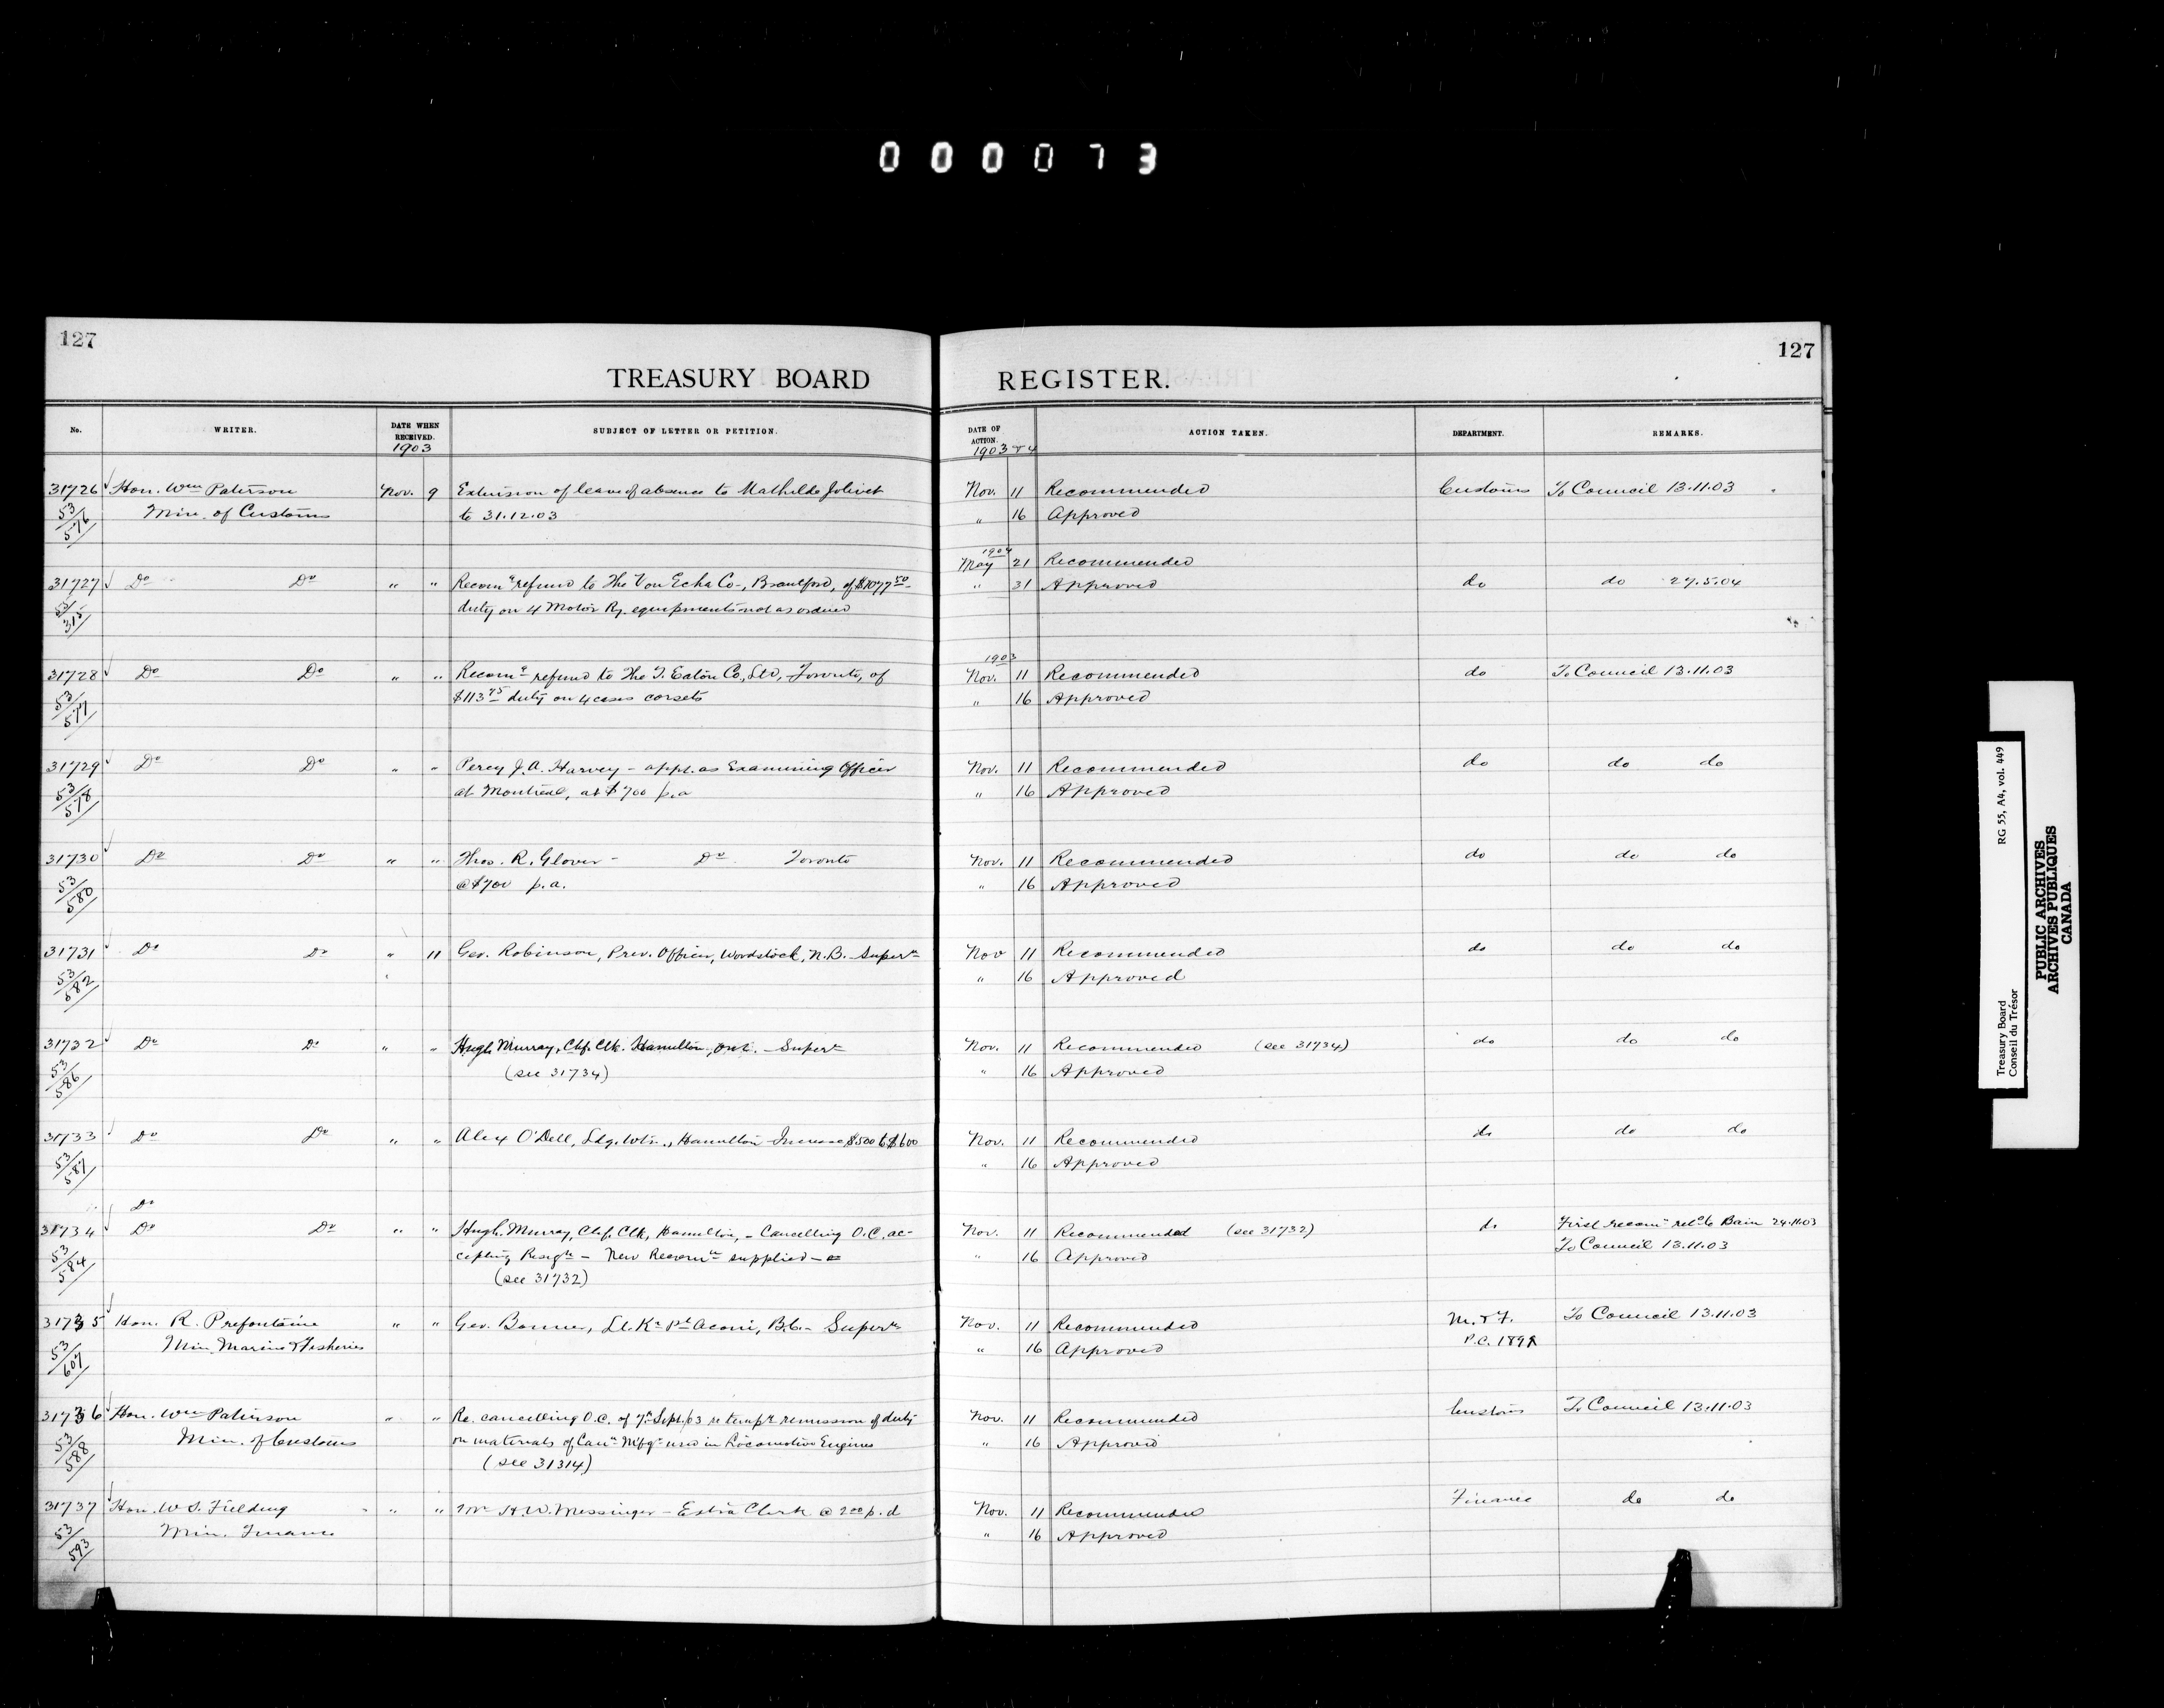 000073
127
127
TREASURY BOARD REGISTER.
No. WRITER. DATE WHEN RECEIVED. SUBJECT OF LETTER OR PETITION. DATE OF ACTION. ACTION TAKEN. DEPARTMENT. REMARKS.
1903 1903 & 4
31726 Hon. Wm Paterson Nov. 9 Extension of leave of absence to Mathilde Jolivet Nov. 11 Recommended Customs To Council 13.11.03
53/576 Min. of Customs to 31.12.03 " 16 Approved
1904
May 21 Recommended
31727 Do Do " " Recomg refund to The Von Echa Co., Brantford, of $1077.50 " 31 Approved do do 27.5.04
53/315 duty on 4 Motor Ry. equipments not as ordered
1903
31728 Do Do " " Recomg refund to The T. Eaton Co., Ltd, Toronto, of Nov. 11 Recommended do To Council 13.11.03
53/577 $113.75 duty on 4 cases corsets " 16 Approved
31729 Do Do " " Percy J. A. Harvey - appt. as Examining Officer Nov. 11 Recommended do do do
53/578 at Montreal, at $700 p.a " 16 Approved
31730 Do Do " " Thos. R. Glover - Do Toronto Nov. 11 Recommended do do do
53/580 @ $700 p.a. " 16 Approved
31731 Do Do " 11 Geo. Robinson, Prev. Officer, Woodstock, N.B. - Supern Nov 11 Recommended do do do
53/582 " 16 Approved
31732 Do Do " " Hugh Murray, Chf. Clk. Hamilton, Ont. - Supern Nov. 11 Recommended (see 31734) do do do
53/586 (see 31734) " 16 Approved
31733 Do Do " " Alex O'Dell, Ldg. Wtr., Hamilton Increase $500 to $600 Nov. 11 Recommended do do do
53/587 " 16 Approved
Do
31734 Do Do " " Hugh Murray, Chf. Clk, Hamilton, - Cancelling O.C. ac- Nov. 11 Recommended (see 31732) do First recomn retd to Bain 24.11.03
53/584 cepting Resign - New Recomn supplied - " 16 Approved To Council 13.11.03
(see 31732)
31735 Hon. R. Prefontaine " " Geo. Bonner, Lt. Kr Pt Aconi, B.C. - Supern Nov. 11 Recommended M. & F. To Council 13.11.03
53/607 Min. Marine & Fisheries " 16 Approved P.C. 189
31736 Hon. Wm Paterson " " Re. cancelling O.C. of 7th Sept/03 re tempy remission of duty Nov. 11 Recommended Customs To Council 13.11.03
53/588 Min. of Customs on materials of Cann Mfgr used in Locomotive Engines " 16 Approved
(see 31314)
31737 Hon. W. S. Fielding " " Mr H. W. Messinger - Extra Clerk @ 2.00 p.d Nov. 11 Recommended Finance do do
53/593 Min. Finance " 16 Approved
Treasury Board RG 55, A4, vol. 449
Conseil du Trésor
PUBLIC ARCHIVES
ARCHIVES PUBLIQUES
CANADA